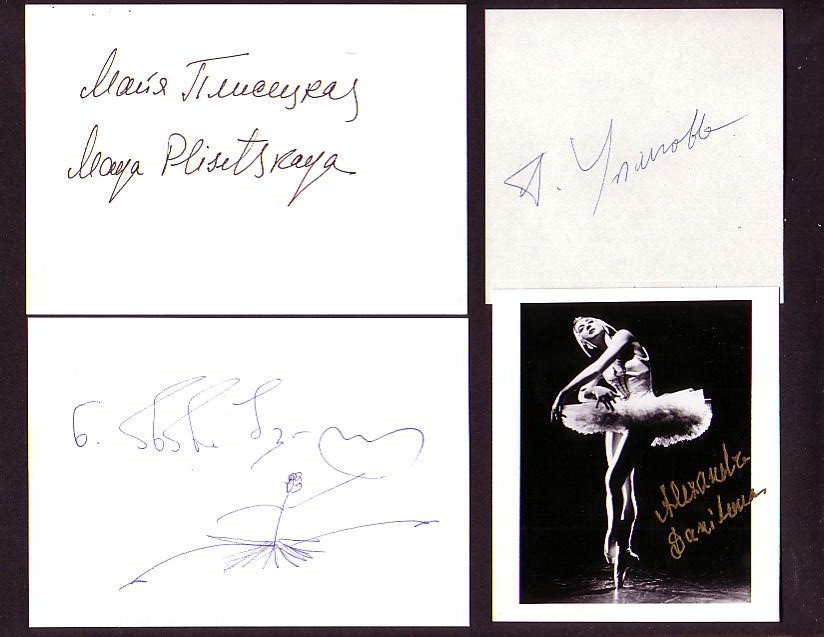 Майя Плисецкая
Maya Plisetskaya
Г. Уланова
Alexandra
Danilova